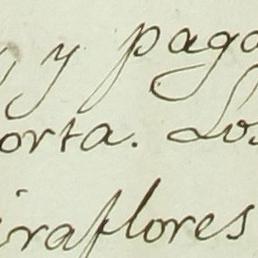 y paga
orta. Los
iraflores